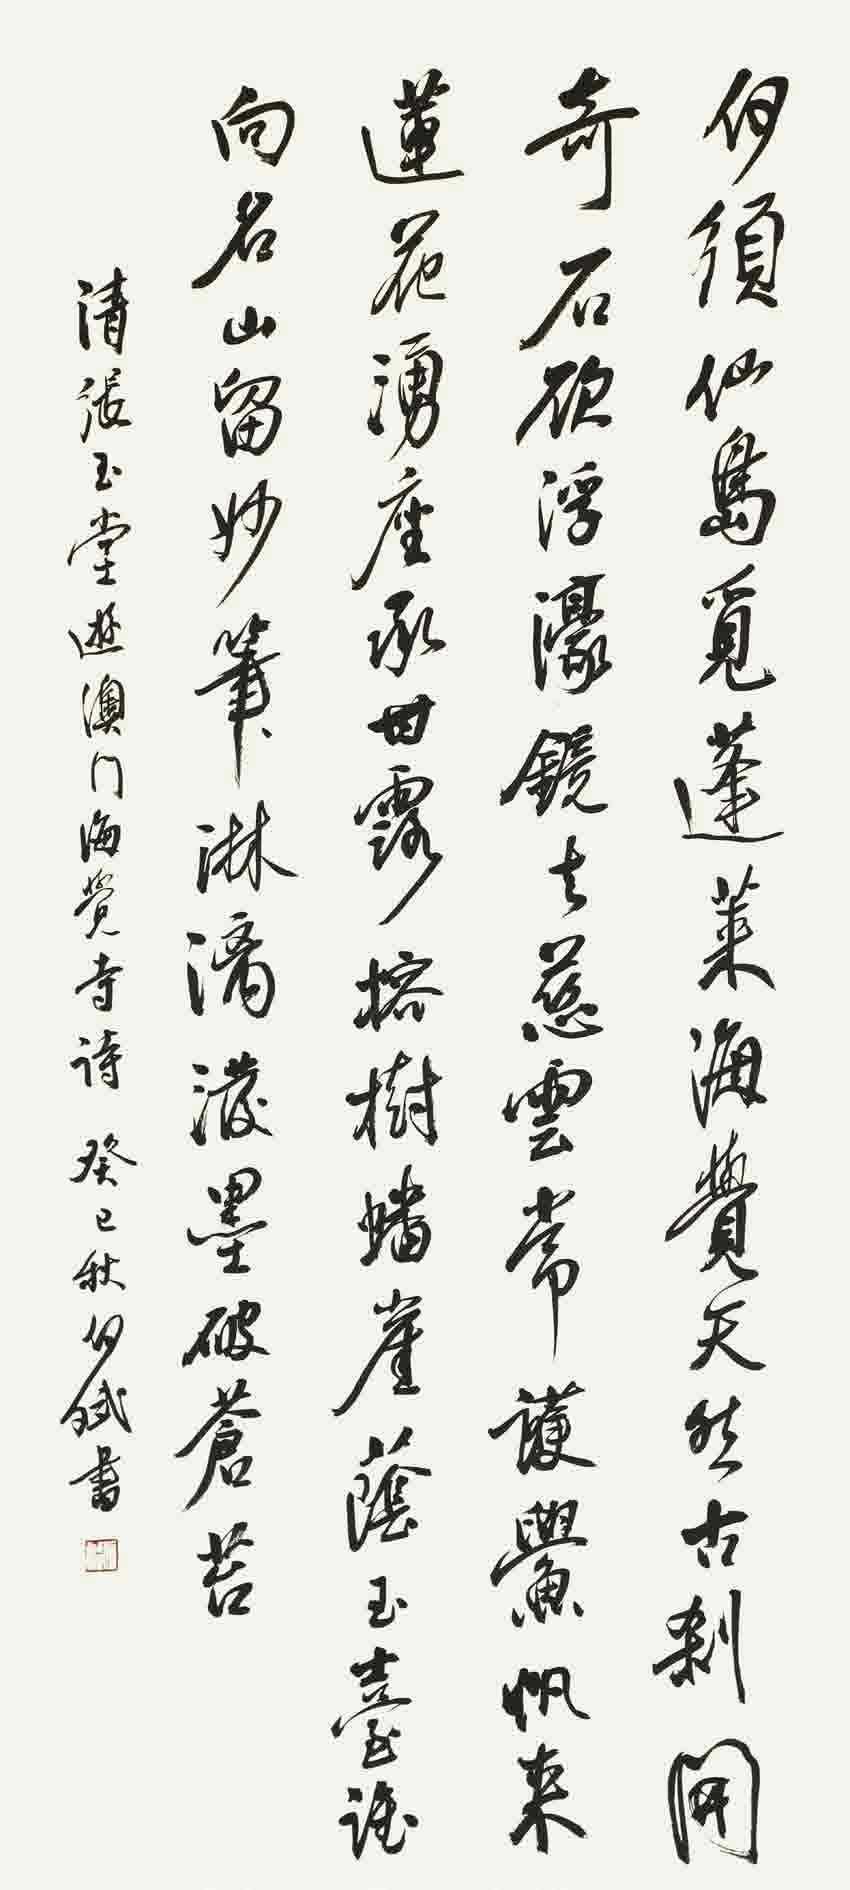 何須仙島覓蓬萊海覺天然古剎開
奇石欲浮濠鏡去慈雲常護鱟帆來
蓮花湧座承甘露榕樹蟠崖蔭玉臺誰
向名山留妙筆淋漓潑墨破蒼苔
清張玉堂遊澳门海覺寺诗 癸巳秋何斌書